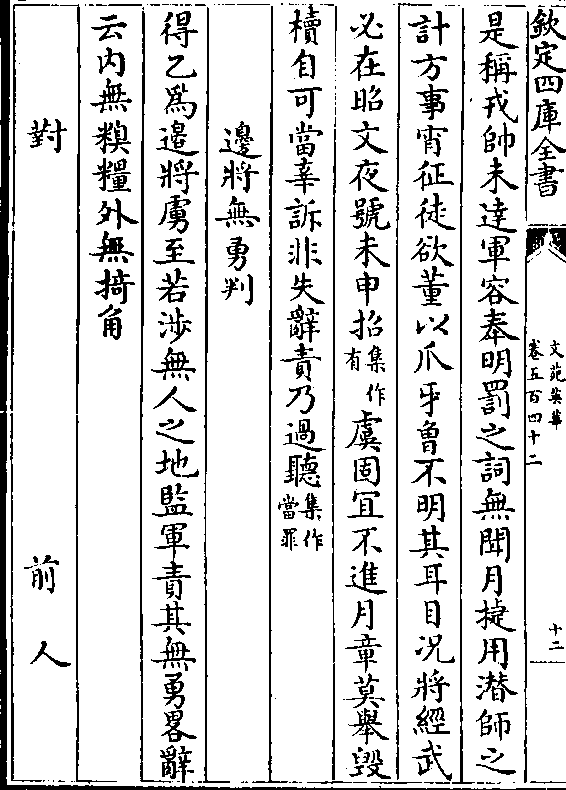 欽定四庫全書
文苑英華
卷五百四十二
十二
是稱戎帥未達軍容奉明罰之詞無聞月捷用潛師之
計方事宵征徒欲董以爪牙曾不明其耳目况將經武
必在昭文夜號未申招集作有虞固宜不進月章莫舉毁
櫝自可當辜訴非失辭責乃過聽集作當罪
邊將無勇判
得乙為邉將虜至若涉無人之地監軍責其無勇畧辭
云内無糗糧外無掎角
對
前人